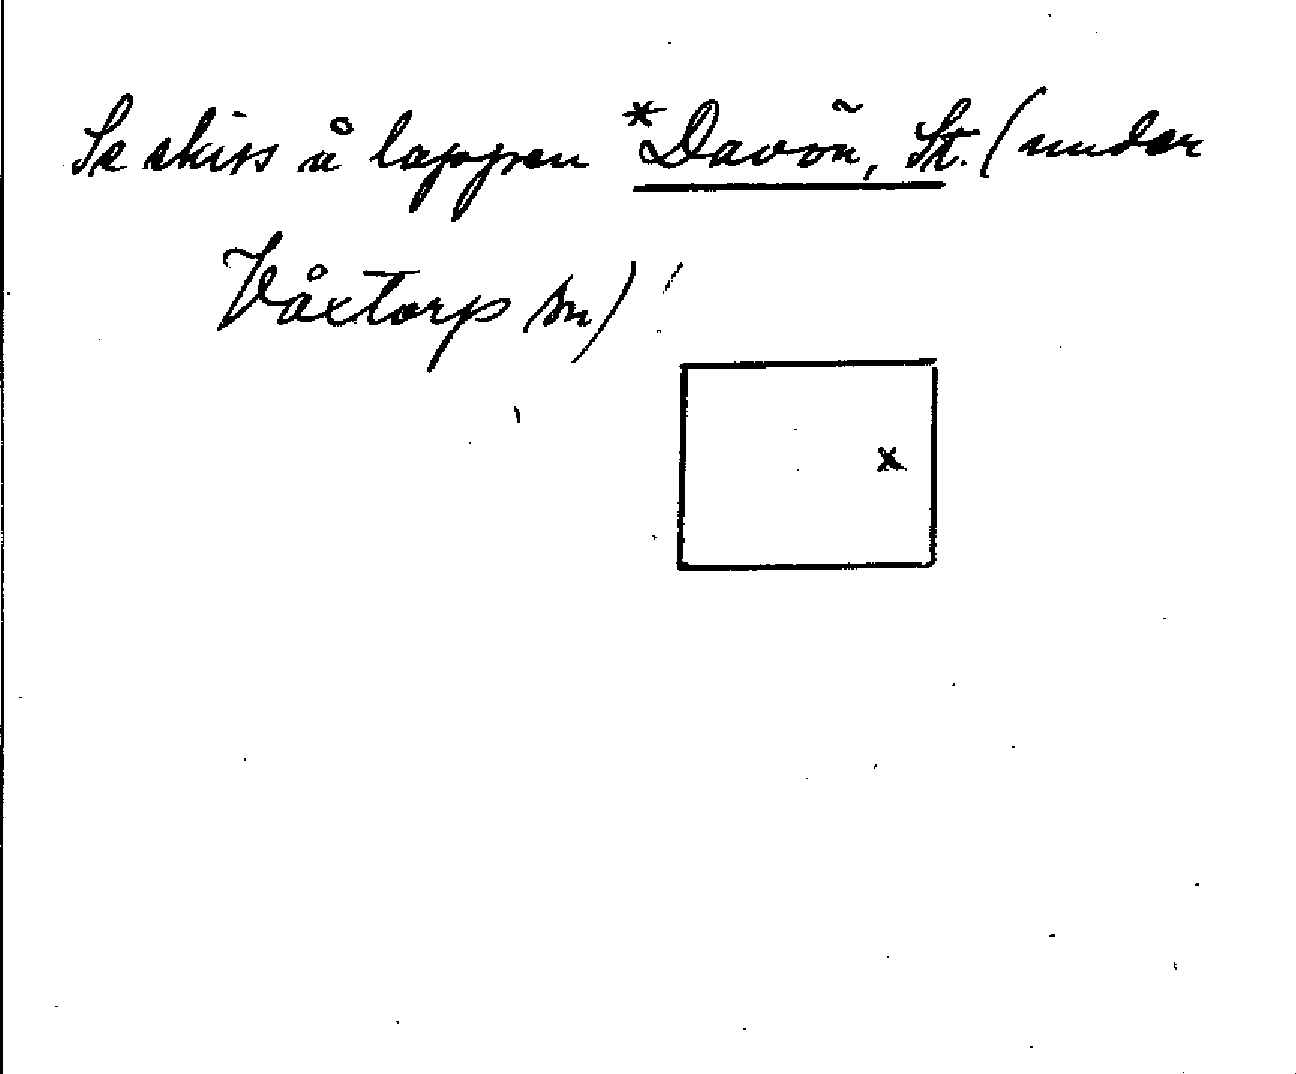 Se skiss å lappen *Davön, St. (under
Våxtorp sn)
x